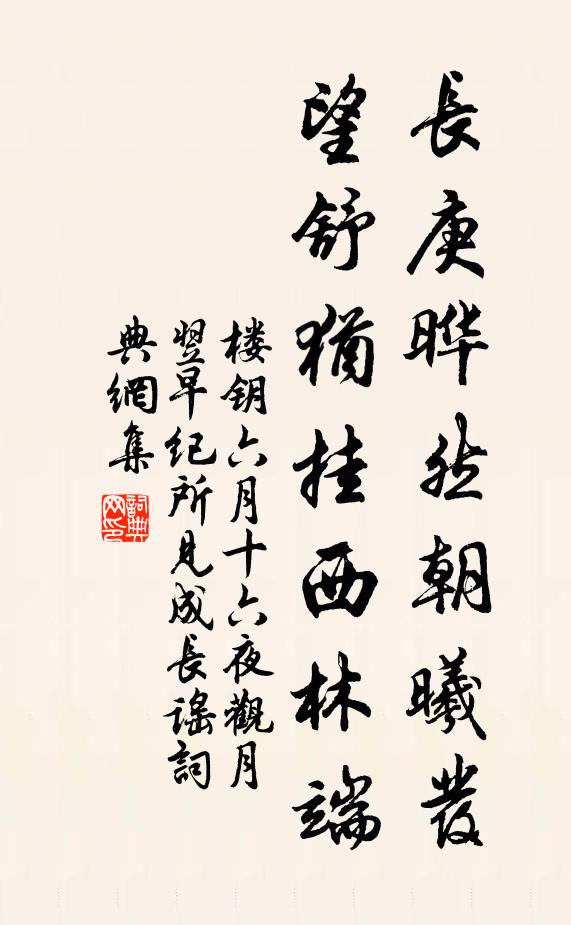 長庚晔然朝曦發
望舒猶挂西林端
楼钥六月十六夜觀月
翌早纪所見成長谣詞
典網集
詞典
网印